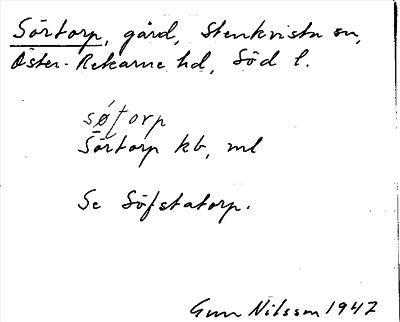 Sörtorp, gård, Stenkvista sn,
Öster-Rekarne hd, Söd l.
søʹtorp
Sörtorp kb, ml
Se Söfstatorp.
Gun Nilsson 1947